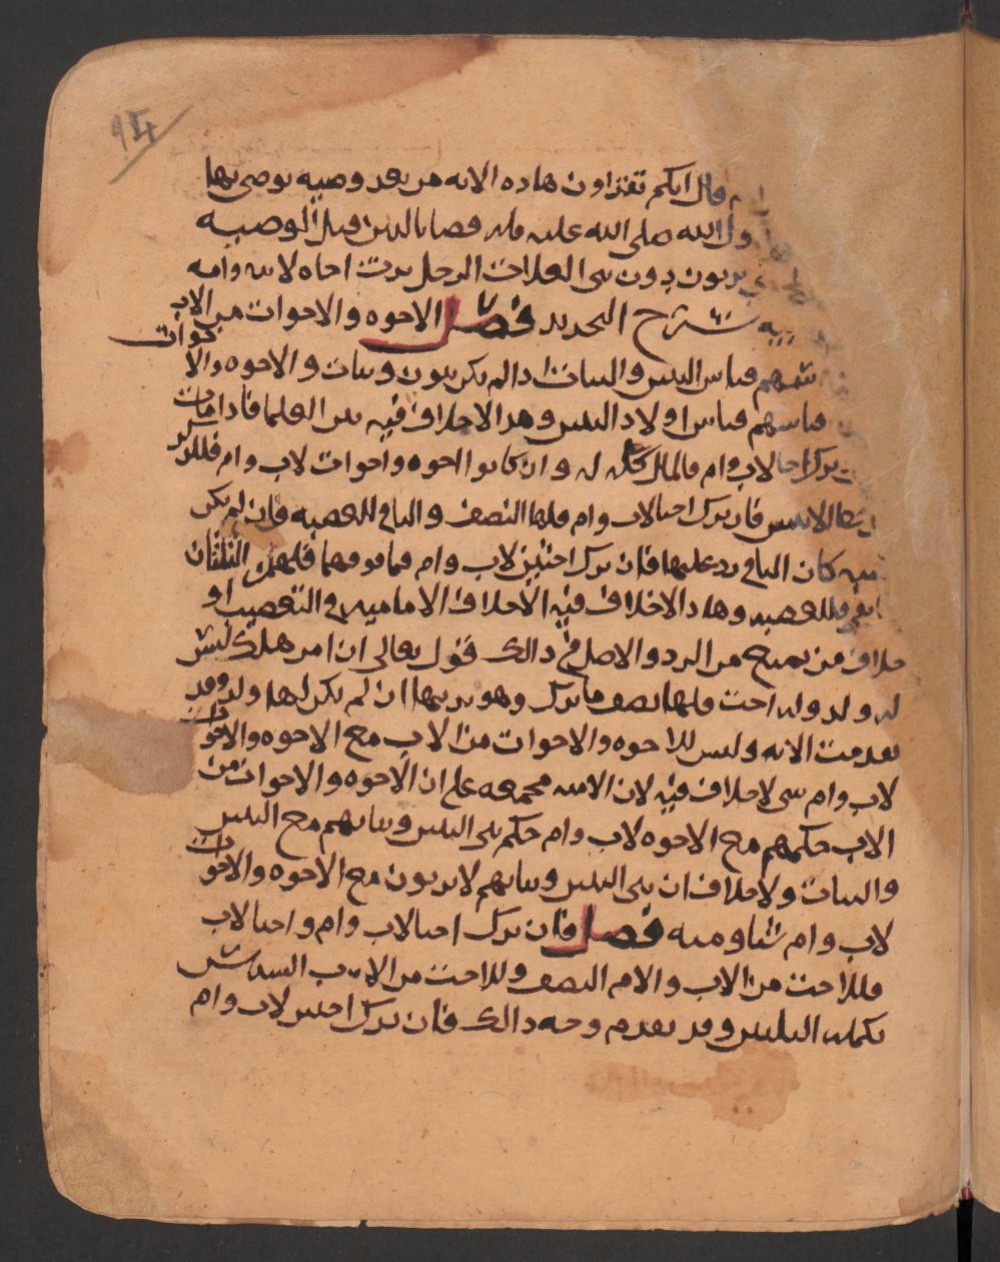 قال انكم تقراون هاذه الايه من بعد وصيه يوصى بها
رسول الله صلى الله عليه واله قضا بالدين قبل الوصيه
يرثون دون بني العلات الرجل يرث اخاه لابيه وامه
شرح التحرير فصل الاخوه والاخوات من الاب
قياس البنين والبنات اذا لم يكن بنون وبنات والاخوه والاخوات
قياسهم قياس اولاد البنين وهذا لا خلاف فيه بين العلما فاذا مات
ترك اخا لاب وام فالمال كله له وان كانوا اخوه واخوات لاب وام فللذكر
الانثيين فان ترك اختا لاب وام فلها النصف والباقي للعصبه فان لم يكن
كان الباقي رد عليها فان ترك اختين لاب وام فما فوقهما فلهن الثلثان
فللعصبه وهاذا لا خلاف فيه الا خلاف الاماميه في التعصيب او
خلاف من يمنع من الرد والاصل في ذالك قول تعالى ان امر هلك ليس
له ولد وله اخت فلها نصف ما ترك وهو يرثها ان لم يكن لها ولد وقد
تقدمت الايه وليس للاخوه والاخوات من الاب مع الاخوه والاخوات
لاب وام شي لا خلاف فيه لان الامه مجمعه على ان الاخوه والاخوات من
الاب حكمهم مع الاخوه لاب وام حكم بني البنين وبناتهم مع البنين
والبنات ولا خلاف ان بني البنين وبناتهم لا يرثون مع الاخوه والاخوات
لاب وام شيا ومنه فصل فان ترك اختا لاب وام واختا لاب
فللاخت من الاب والام النصف وللاخت من الاب السدس
تكمله الثلثين وقد تقدم وجه ذالك فان ترك اختين لاب وام